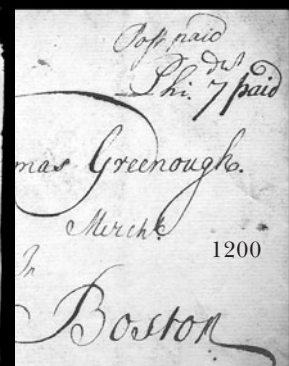 Post paid
dwt
Phi. 7 paid
mas Greenough.
Mercht
1200
In
Boston